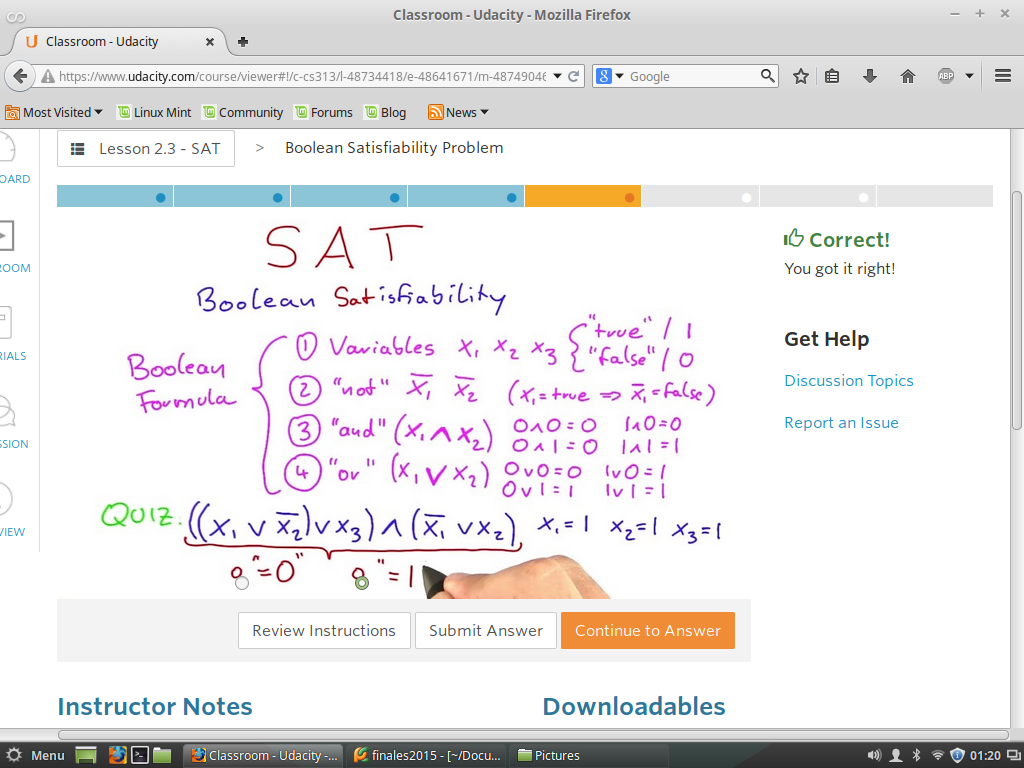 Classroom - Udacity - Mozilla Firefox
Classroom - Udacity
https://www.udacity.com/course/viewer#!/c-cs313/l-48734418/e-48641671/m-48749046
Google
ABP
Most Visited Linux Mint Community Forums Blog News
Lesson 2.3 - SAT > Boolean Satisfiability Problem
OARD
ROOM
RIALS
SSION
VIEW
SAT
Boolean Satisfiability
Boolean Formula
① Variables x₁ x₂ x₃ { "true" / 1
"false" / 0
② "not" x̅₁ x̅₂ (x₁=true ⇒ x̅₁=false)
③ "and" (x₁ ∧ x₂) 0∧0=0 1∧0=0
0∧1=0 1∧1=1
④ "or" (x₁ ∨ x₂) 0∨0=0 1∨0=1
0∨1=1 1∨1=1
QUIZ. ((x₁ ∨ x̅₂) ∨ x₃) ∧ (x̅₁ ∨ x₂) x₁=1 x₂=1 x₃=1
"=0" "=1
Correct!
You got it right!
Get Help
Discussion Topics
Report an Issue
Review Instructions Submit Answer Continue to Answer
Instructor Notes Downloadables
Menu Classroom - Udacity -... finales2015 - [~/Docu... Pictures 01:20